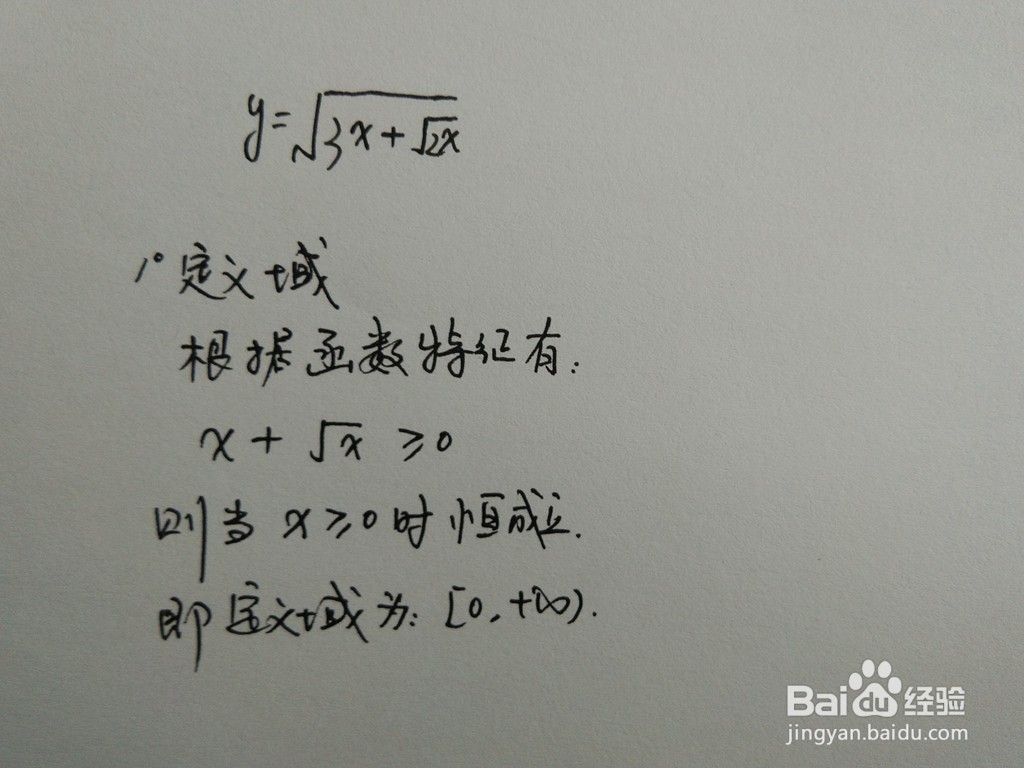 y=√(3x+√2x)
1°定义域
根据函数特征有:
x+√x ≥0
则当 x≥0时恒成立.
即定义域为: [0,+∞).
Baidu经验
jingyan.baidu.com